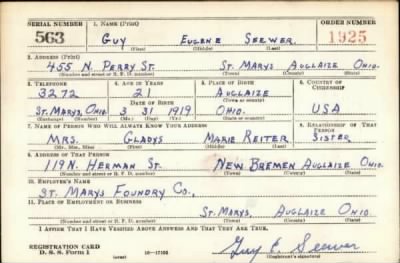 SERIAL NUMBER 1. NAME (Print) ORDER NUMBER
563 GUY EUGENE SEEWER 1925
(First) (Middle) (Last)
2. ADDRESS (Print)
455 N. PERRY ST. ST. MARYS AUGLAIZE OHIO.
(Number and street or R. F. D. number) (Town) (County) (State)
3. TELEPHONE 4. AGE IN YEARS 5. PLACE OF BIRTH 6. COUNTRY OF CITIZENSHIP
3272 21 AUGLAIZE
DATE OF BIRTH (Town or county)
ST. MARYS, OHIO. 3 31 1919 OHIO. USA
(Exchange) (Number) (Mo.) (Day) (Yr.) (State or country)
7. NAME OF PERSON WHO WILL ALWAYS KNOW YOUR ADDRESS 8. RELATIONSHIP OF THAT PERSON
MRS. GLADYS MARIE REITER SISTER
(Mr., Mrs., Miss) (First) (Middle) (Last)
9. ADDRESS OF THAT PERSON
119 N. HERMAN ST. NEW BREMEN AUGLAIZE OHIO.
(Number and street or R. F. D. number) (Town) (County) (State)
10. EMPLOYER'S NAME
ST. MARYS FOUNDRY CO.,
11. PLACE OF EMPLOYMENT OR BUSINESS
ST. MARYS, AUGLAIZE OHIO.
(Number and street or R. F. D. number) (Town) (County) (State)
I AFFIRM THAT I HAVE VERIFIED ABOVE ANSWERS AND THAT THEY ARE TRUE.
REGISTRATION CARD
D. S. S. Form 1 (over) 16—17105 Guy E. Seewer
(Registrant's signature)